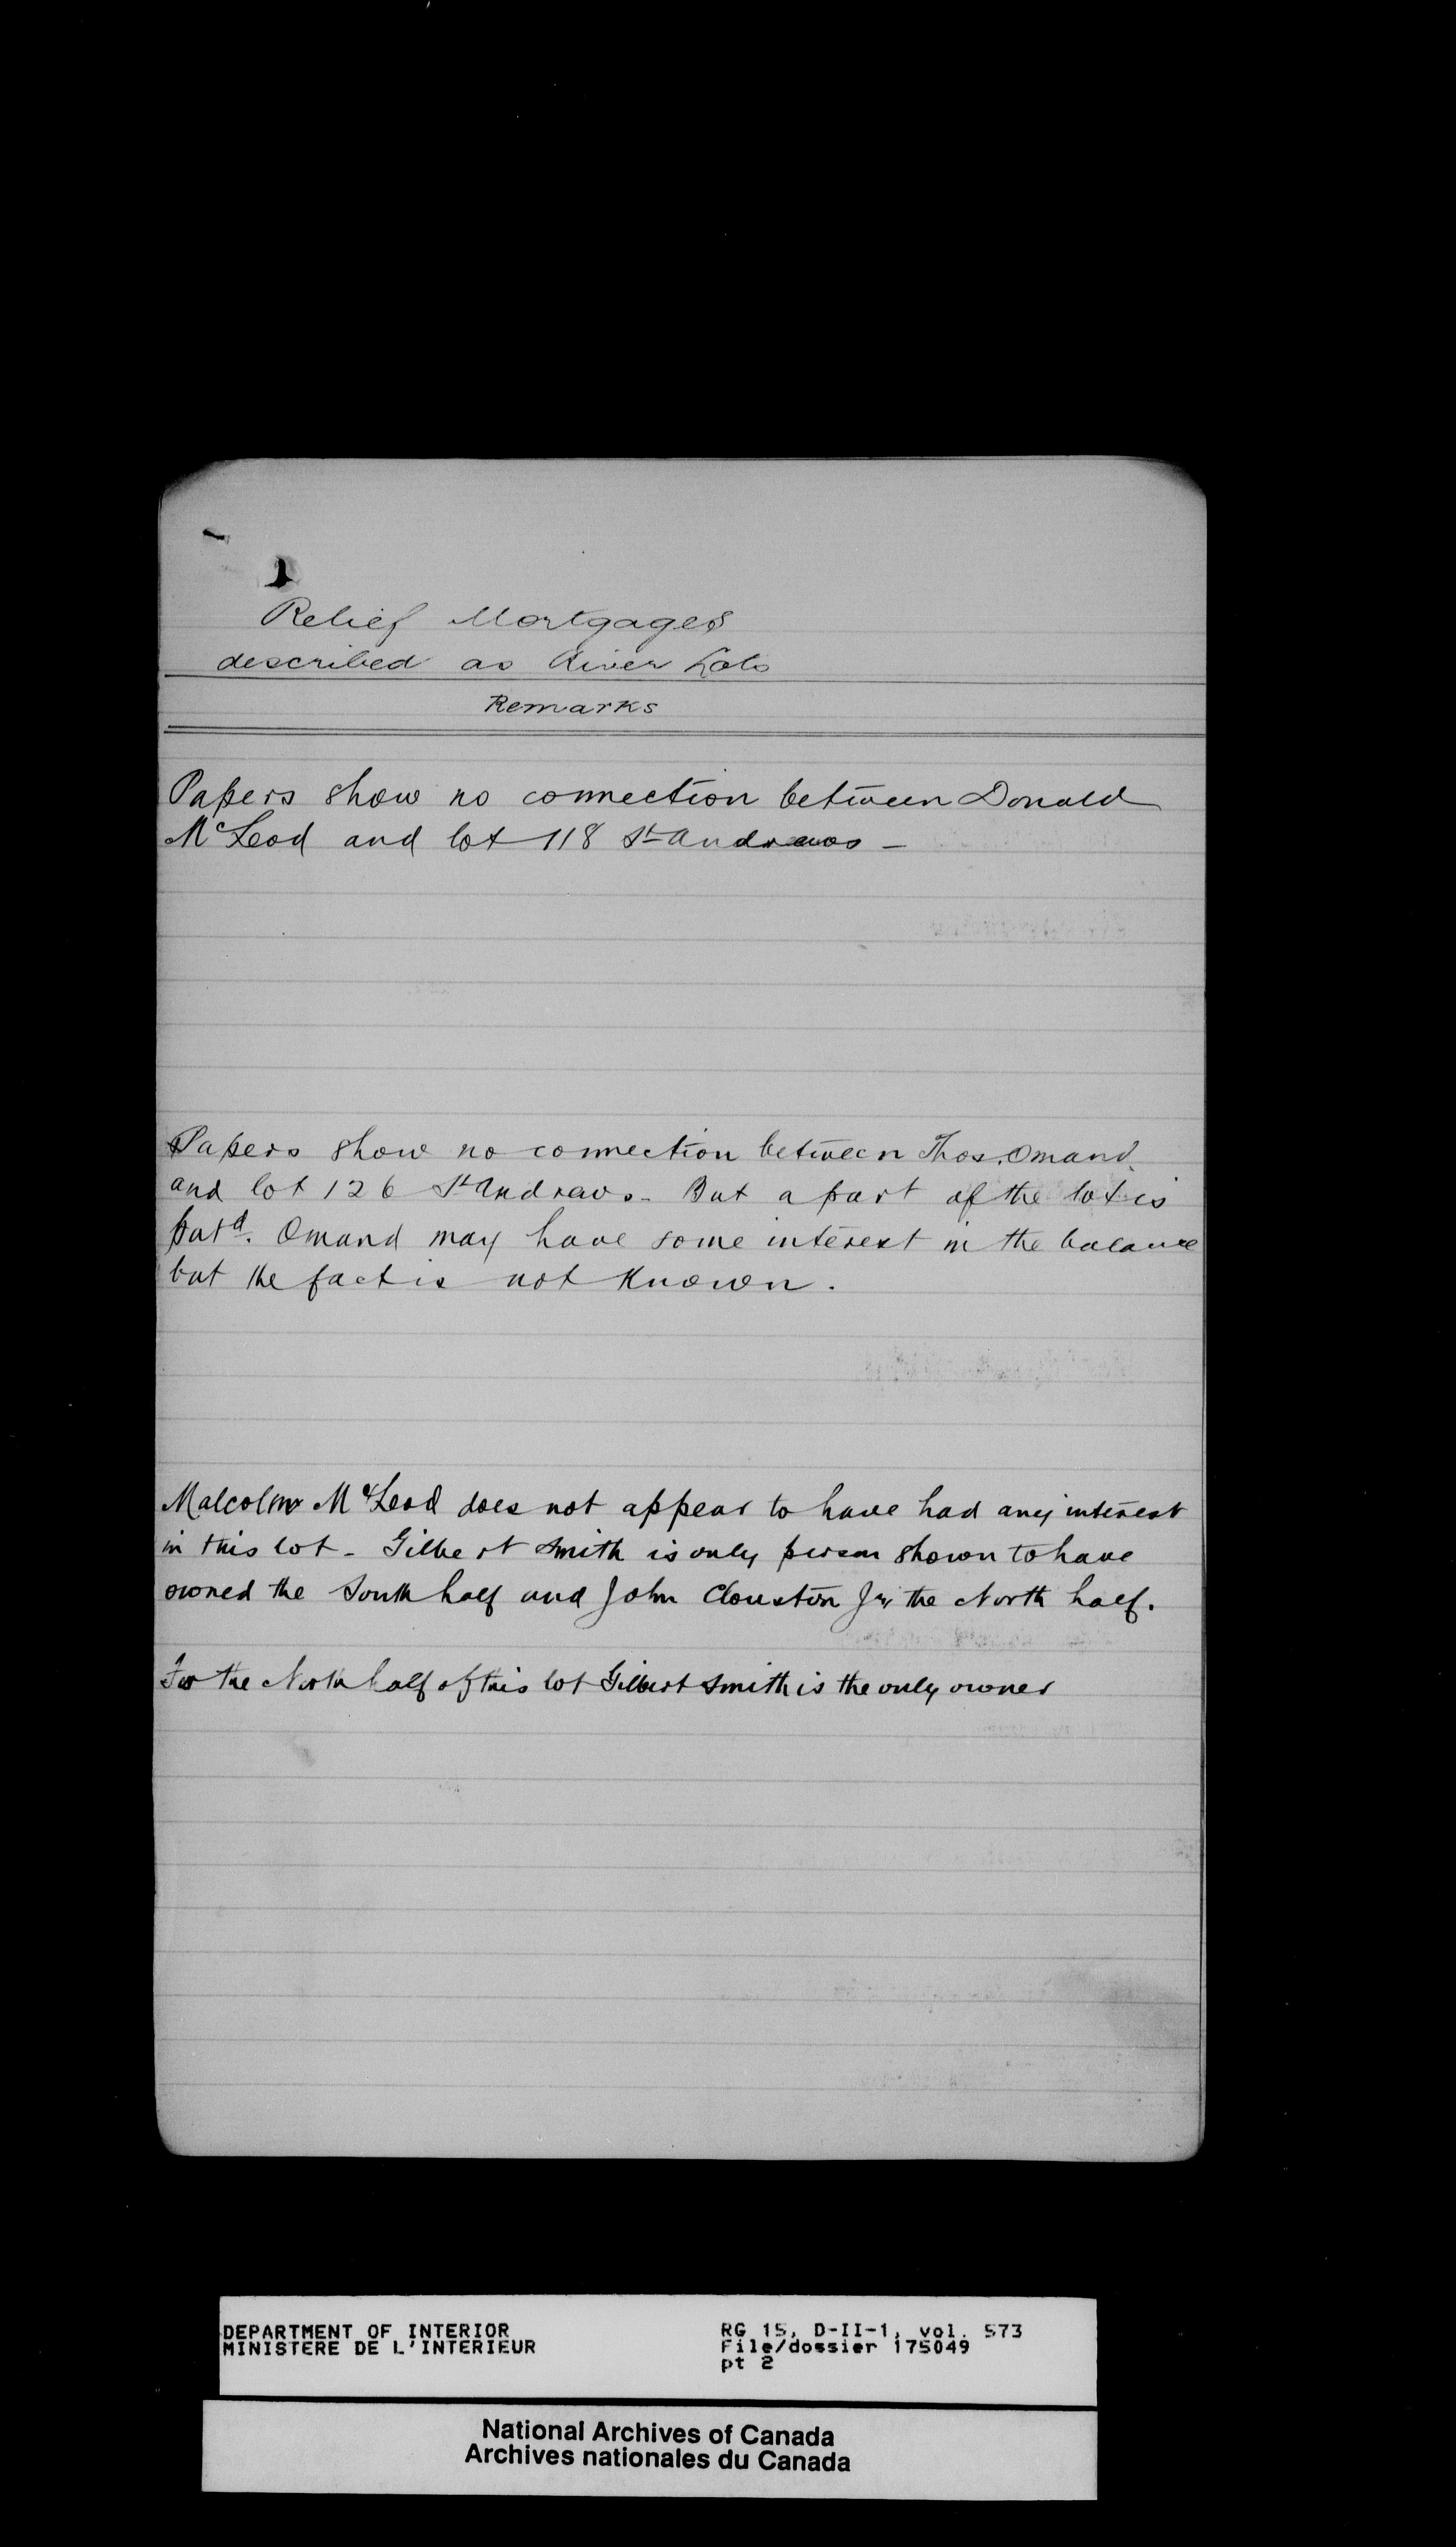 Relief Mortgages
described as River Lots
Remarks
Papers show no connection between Donald
McLeod and lot 118 St Andrews -
Papers show no connection between Thos. Omand
and lot 126 St Andrews - But a part of the lot is
patd. Omand may have some interest in the balance
but the fact is not known.
Malcolm McLeod does not appear to have had any interest
in this lot - Gilbert Smith is only person shown to have
owned the South half and John Clouston Jr, the North half.
For the North half of this lot Gilbert Smith is the only owner
DEPARTMENT OF INTERIOR
MINISTERE DE L'INTERIEUR
RG 15, D-II-1, vol. 573
File/dossier 175049
pt 2
National Archives of Canada
Archives nationales du Canada